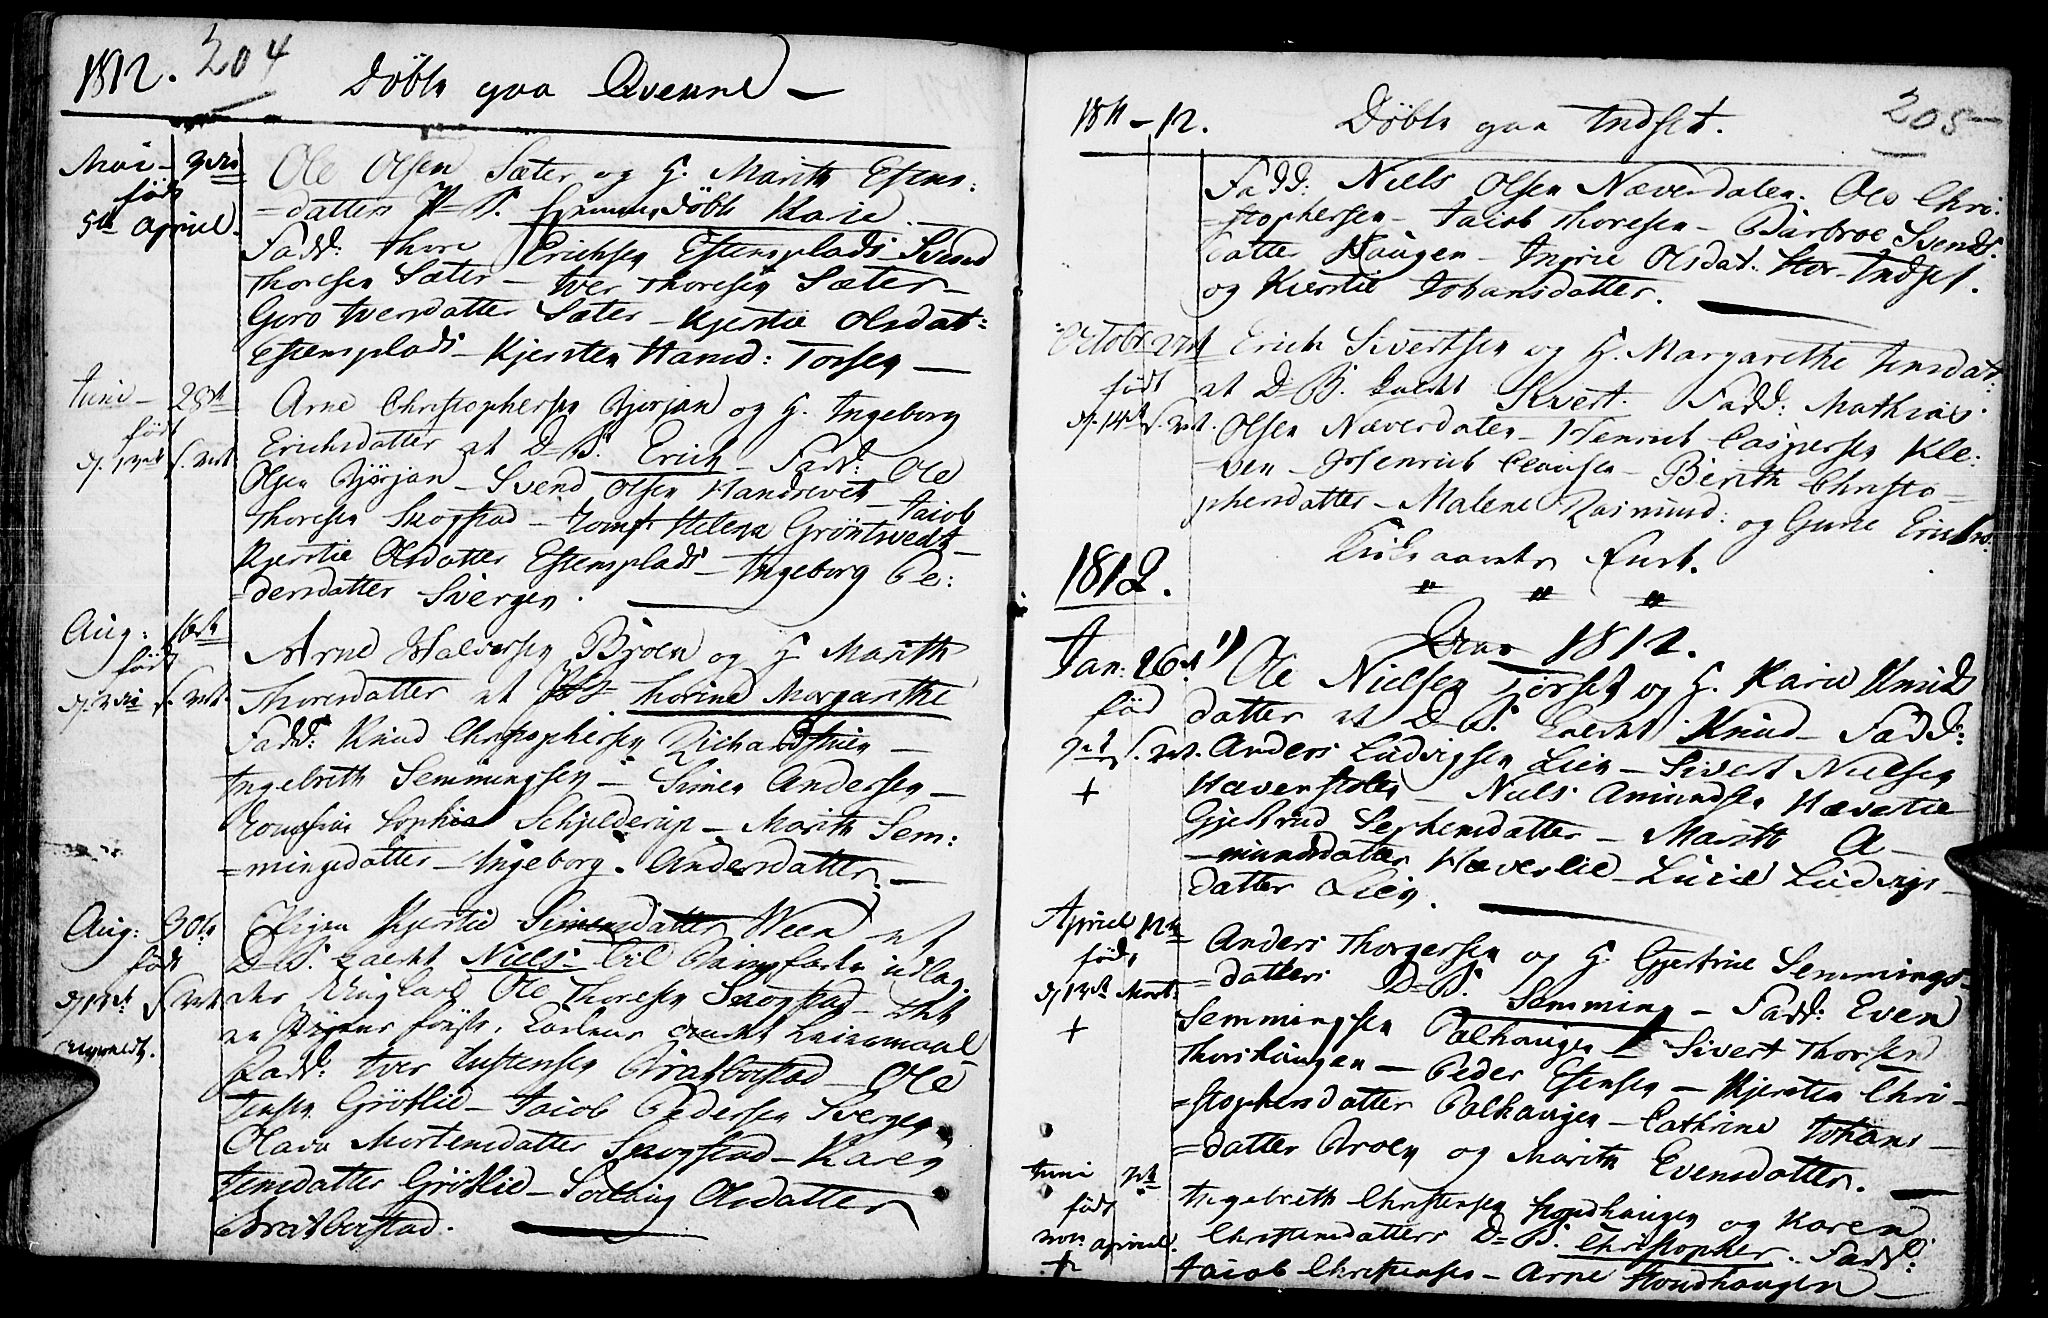 1812. 204
Döbte paa Qvenne —
Mai — 3die
född
5te Apriel.
Ole Olsen Sæter og H. Marith Estens:
=datters P= B. hjemmedöbt Karie. —
Fadd: Thore Erichsen Estensplads — Svend
Thoresen Sæter — Iver Thoresen Sæter —
Guro Iversdatter Sæter — Kjerstie Olsdat=
Estensplads — Kjersten Hansd: Torsen —
Juni — 28de
född
Arne Christophersen Bjørjan og H. Ingeborg
Erichsdatter et D= B. Erich — Fadd: Ole
Olsen Bjørjan — Svend Olsen — Jacob
Thoresen Skogstad — Jomfr Helena Grøntvedt —
Kjerstie Olsdatter Estensplads — Ingeborg Pe:
=dersdatter Svergen. —
Aug: 16de
född
Arne Halversen Bjöen og H. Marith
Thoresdatter et P=B= Thorine Margarethe
Fadd: Knud Christophersen —
Ingebreth Semmingsen — Simen Andersen —
Jomfrue Sophia Schjelderup — Marith Sem:
=mingsdatter — Ingeborg Andersdatter. —
Aug: 30te
född
Pigen Kjerstie Simensdatter Weен et
D= B. kaldt Niels — til Barnefader udlag:
des Ungkarl Ole Thoresen Skogstad — Det
er Pigens förste, Leiermaal
Fadd: Iver Justensen Bratberstad — Ole
Jensen Grötlie — Jacob Pedersen Svergen
Olava Mortensdatter Skogstad — Karen
Jensdatter Grötlie — Olsdatter
Bratberstad. —
1811 — 12. Döbte paa Indset. 205
Fadd: Niels Olsen Næverdalen. Ole Chri:
=stophersen — Jacob Thoresen — Barbroe Svends:
datter Haugen — Ingrie Olsdat: Stor-Indset.
og Kierstie Johansdatter. —
October 27de
född
Erich Sivertsen og H. Margarethe Jensdat:
et D= B. kaldt Sivert. Fadd: Mathias
Olsen Næverdalen — Henrich Caspersen Kle:
=ven — Henrich Clausen — Berith Christo —
phersdatter — Malene Rasmusd: og Gurie Erichs:
1812.
Aar 1812.
Jan: 26de
född
+
1) Ole Nielsen Torset og H. Karie Knuds
datter et D= B. kaldt Knud — Fadd:
Anders Ludvigsen Lien — Sivert Nielsen
Næverstolen — Niels Amundsen Hæverlie
Gjertrud Stephensdatter — Marith A —
—mundsdatter Hæverlie — Lucie Ludvigs —
datter Lien. —
Apriel 12te
född
Mart:
+
Anders Thorgersen og H. Gjertrue Semmings=
=datters D= B. Semming — Fadd: Even
Semmingsen Palhaugen — Sivert Thorsen
Thorshaugen — Peder Estensen — Kjersten Chri —
=stophersdatter Palhaugen — Cathrine Johans —
=datter Broen og Marith Evensdatter. —
Juni 7de
född
Apriel.
+
Ingebreth Christensen Hondhaugen og Karen
Christensdatters D= B. Christopher. Fadd:
Jacob Christensen — Arne Hondhaugen —